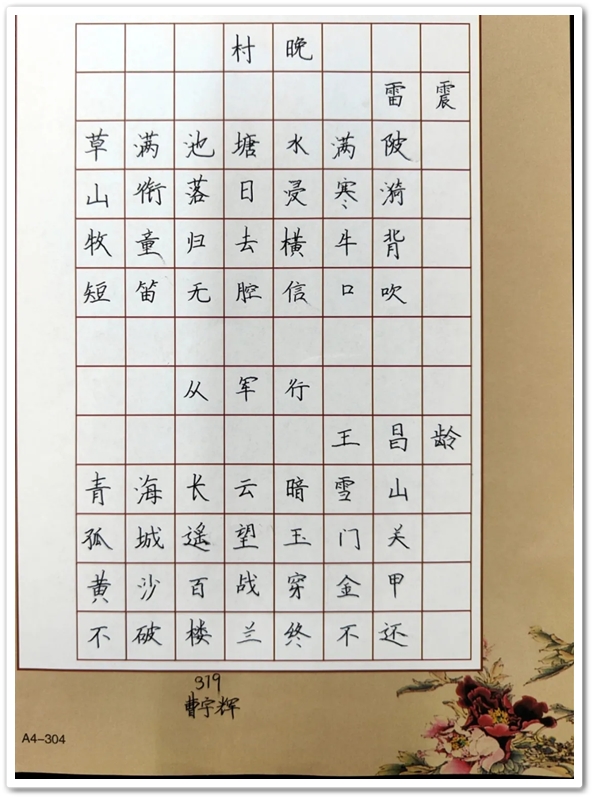 村晚
雷震
草满池塘水满陂
山衔落日浸寒漪
牧童归去横牛背
短笛无腔信口吹
从军行
王昌龄
青海长云暗雪山
孤城遥望玉门关
黄沙百战穿金甲
不破楼兰终不还
319
曹宇辉
A4-304